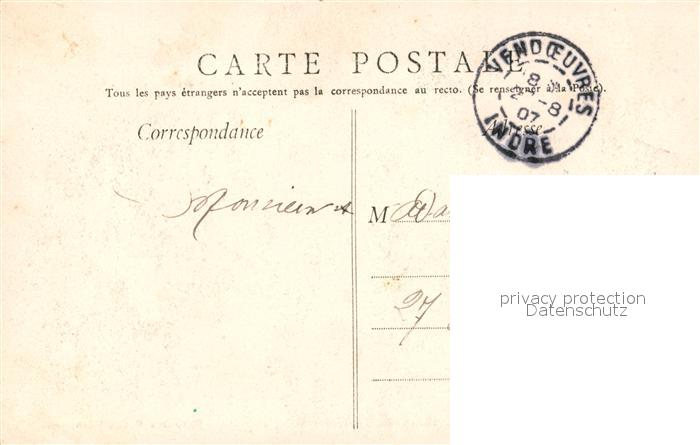 CARTE POSTALE
Tous les pays étrangers n'acceptent pas la correspondance au recto. (Se renseigner à la Poste).
VENDŒUVRES
8
2 -8
07
INDRE
Correspondance
Adresse
Monsieur et
M
27
privacy protection
Datenschutz